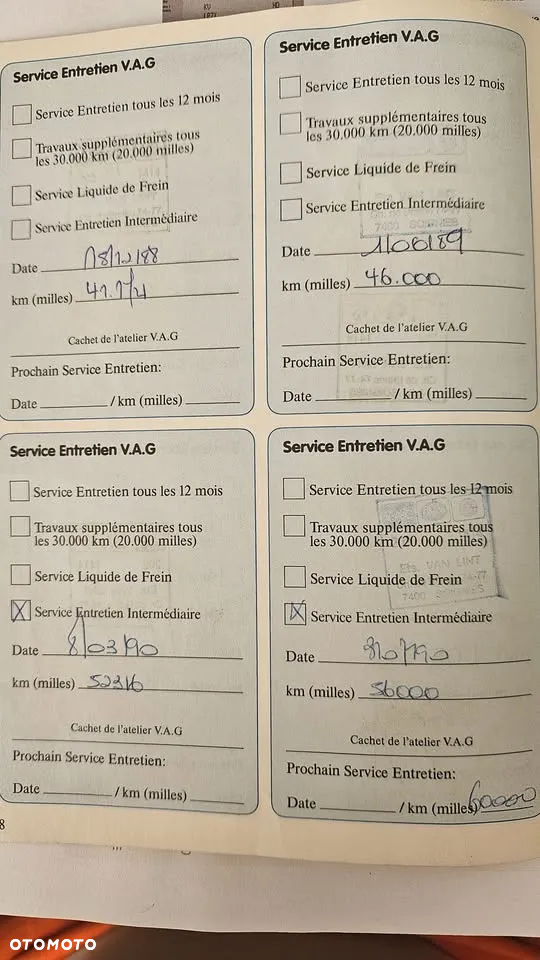 Service Entretien V.A.G
Service Entretien tous les 12 mois
Travaux supplémentaires tous
les 30.000 km (20.000 milles)
Service Liquide de Frein
Service Entretien Intermédiaire
Date 18/12/88
km (milles)
Cachet de l'atelier V.A.G
Prochain Service Entretien:
Date / km (milles)
Service Entretien V.A.G
Service Entretien tous les 12 mois
Travaux supplémentaires tous
les 30.000 km (20.000 milles)
Service Liquide de Frein
Service Entretien Intermédiaire
Date 1/06/89
km (milles) 46.000
Cachet de l'atelier V.A.G
Prochain Service Entretien:
Date / km (milles)
Service Entretien V.A.G
Service Entretien tous les 12 mois
Travaux supplémentaires tous
les 30.000 km (20.000 milles)
Service Liquide de Frein
X Service Entretien Intermédiaire
Date 8/03/90
km (milles) 52316
Cachet de l'atelier V.A.G
Prochain Service Entretien:
Date / km (milles)
8
Service Entretien V.A.G
Service Entretien tous les 12 mois
Travaux supplémentaires tous
les 30.000 km (20.000 milles)
Ets. VAN LINT
Service Liquide de Frein
7400
X Service Entretien Intermédiaire
Date
km (milles) 56000
Cachet de l'atelier V.A.G
Prochain Service Entretien:
Date / km (milles) 60000
OTOMOTO